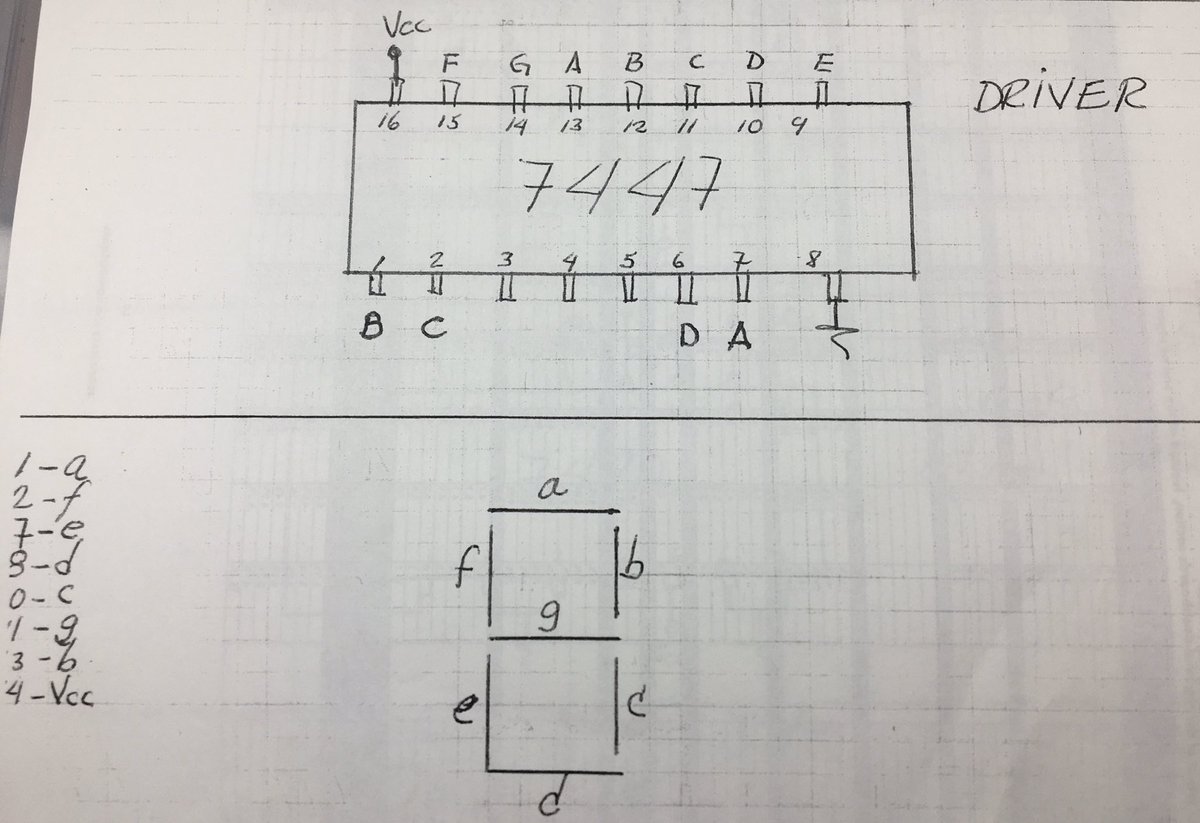 Vcc
F G A B C D E
DRİVER
16 15 14 13 12 11 10 9
7447
1 2 3 4 5 6 7 8
B C D A
1-a
2-f
7-e
8-d
0-c
1-g
3-b
4-Vcc
a
f b
g
e c
d